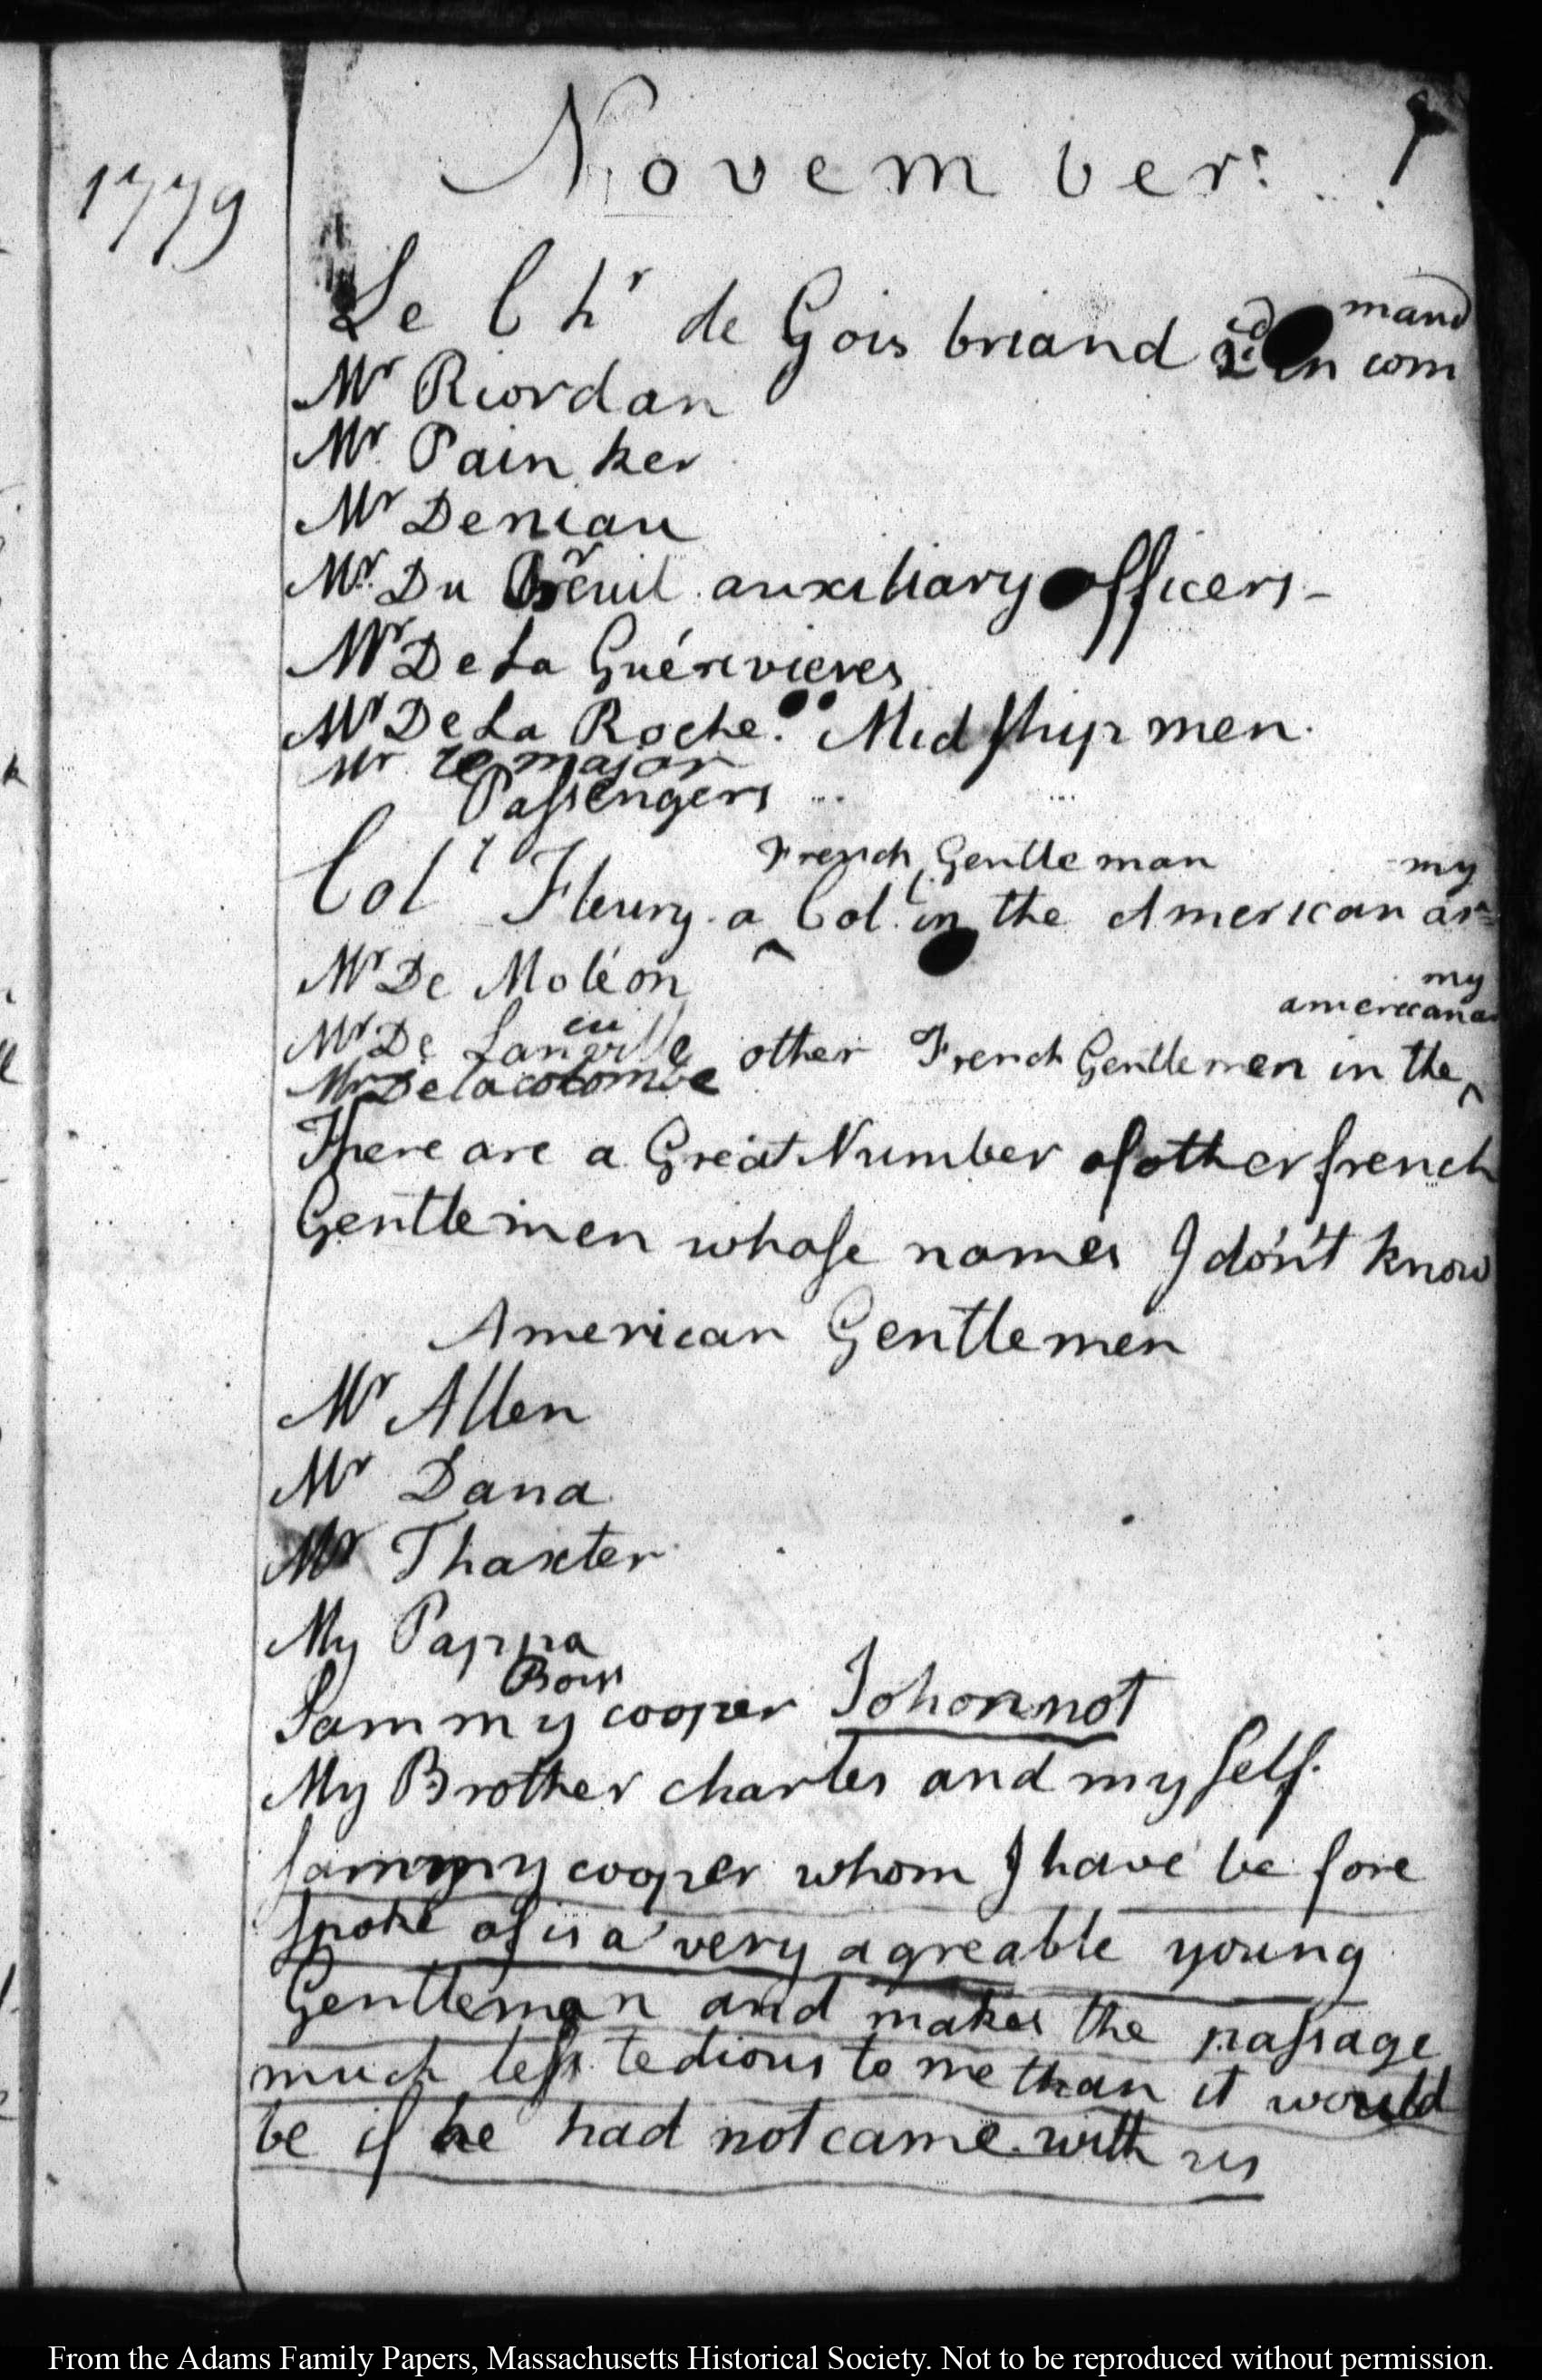 1779
November.
Le Chr de Goisbriand 2d in command
Mr Riordan
Mr Painker
Mr Deniau
Mr Du Breuil auxiliary officers
Mr De La Guérivieres
Mr De La Roche. Midshipmen.
Mr le major
Passengers
French Gentleman my
Coll Fleury. a Col. in the American ar=
Mr De Moléon
my
american ar
Mr De Laneuville other French Gentlemen in the
Mr De la colombe
There are a Great Number of other french
Gentlemen whose names I don't know
American Gentlemen
Mr Allen
Mr Dana
Mr Thaxter
My Pappa
Sammy cooper Johonnot
My Brother charles and my self.
Sammy cooper whom I have be fore
spoke of is a very agreable young
Gentleman and makes the passage
much less tedious to me than it would
be if he had not came with us
From the Adams Family Papers, Massachusetts Historical Society. Not to be reproduced without permission.